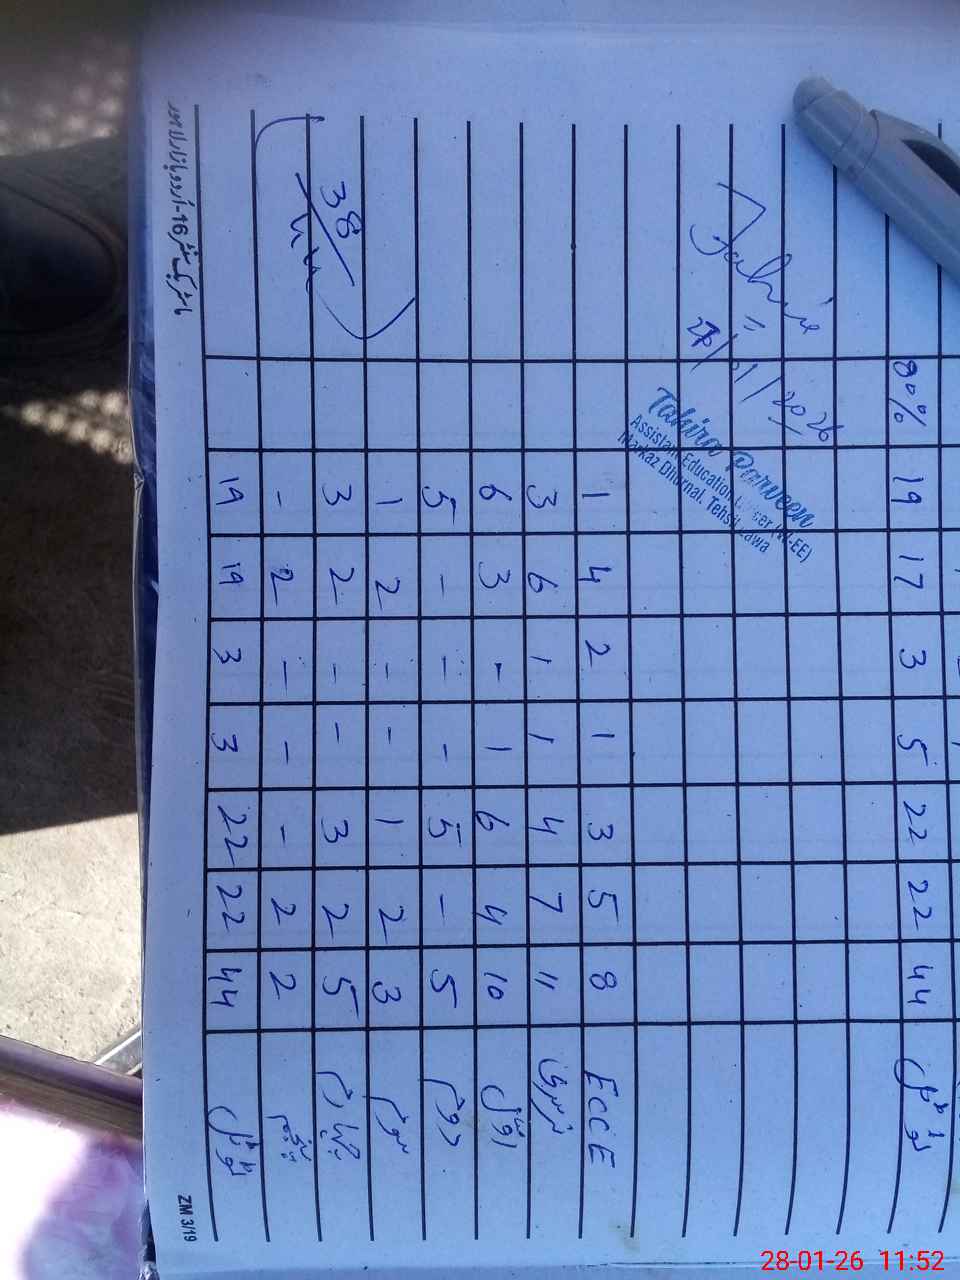 ٹوٹل 44 22 22 5 3 17 19 80%
28/01/2026
Tahira Parveen
Assistant Education Officer (W-EE)
Markaz Dhurnal, Tehsil Lawa
ECCE 8 5 3 1 2 4 1
نرسری 11 7 4 1 1 6 3
اوّل 10 4 6 1 - 3 6
دوم 5 - 5 - - - 5
سوم 3 2 1 - - 2 1
چہارم 5 2 3 - - 2 3
پنجم 2 2 - - - 2 -
ٹوٹل 44 22 22 3 3 19 19
38/44
ماسٹر بک سنٹر 16-اردو بازار لاہور
ZM 3/19
28-01-26 11:52